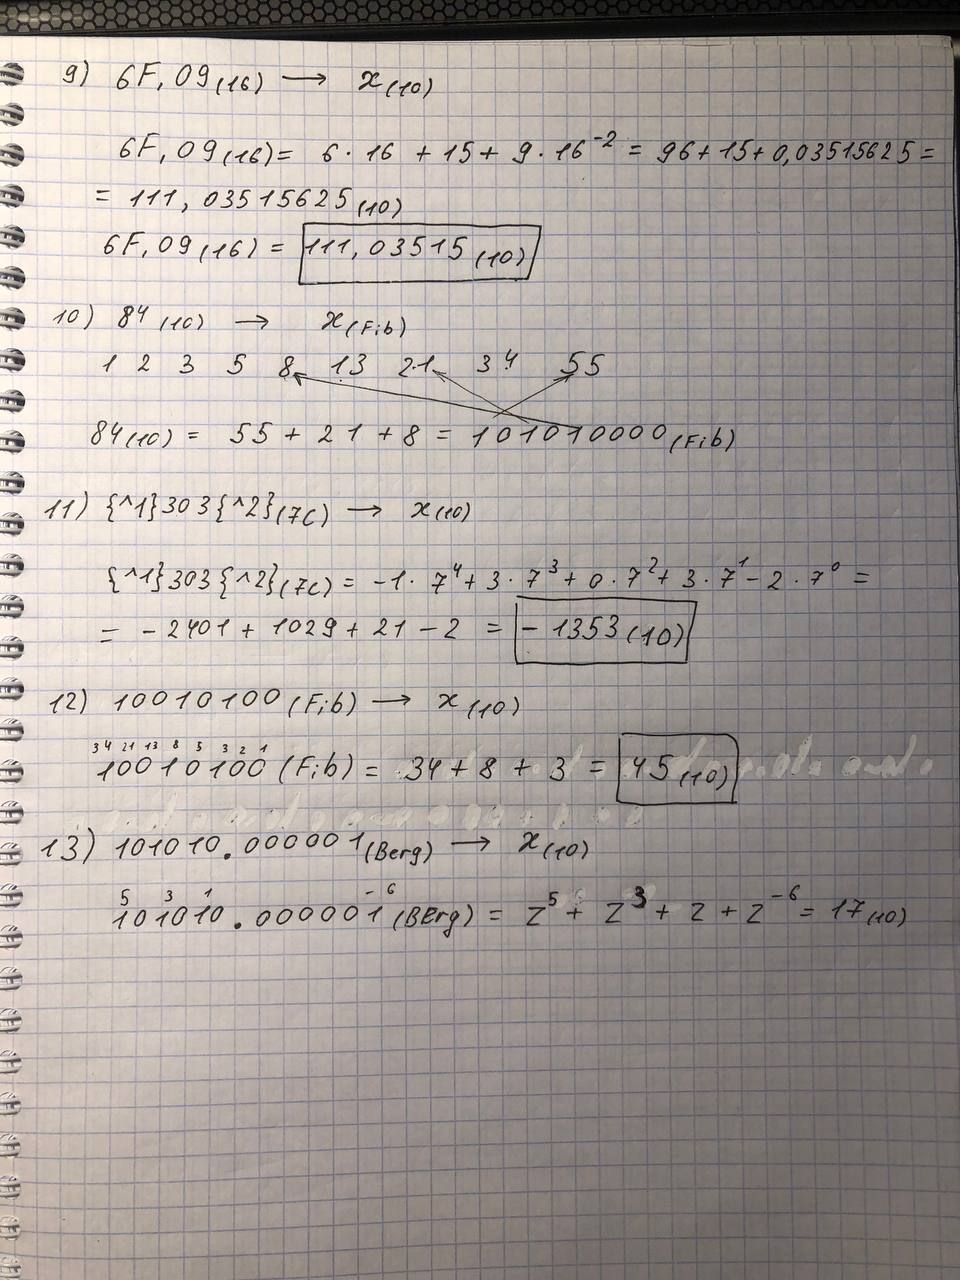 9) 6F,09(16) → x(10)
6F,09(16) = 6·16 + 15 + 9·16^-2 = 96+15+0,03515625 =
= 111,03515625(10)
6F,09(16) = 111,03515(10)
10) 84(10) → x(Fib)
1 2 3 5 8 13 21 34 55
84(10) = 55 + 21 + 8 = 101010000(Fib)
11) {^1}303{^2}(7C) → x(10)
{^1}303{^2}(7C) = -1·7^4 + 3·7^3 + 0·7^2 + 3·7^1 - 2·7^0 =
= -2401 + 1029 + 21 - 2 = -1353(10)
12) 10010100(Fib) → x(10)
34 21 13 8 5 3 2 1
10010100(Fib) = 34 + 8 + 3 = 45(10)
13) 101010.000001(Berg) → x(10)
5 3 1 -6
101010.000001(BErg) = z^5 + z^3 + z + z^-6 = 17(10)